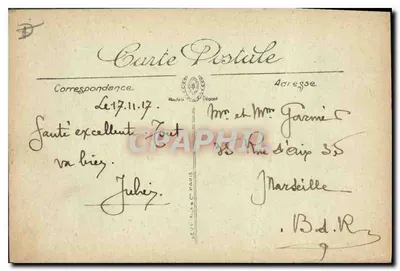 Carte Postale
Correspondance
Adresse
Le 17.11.17.
Santé excellente Tout
va bien
Mr et Mme Garnier
35 Rue d'aix 35
Marseille
B.d.R